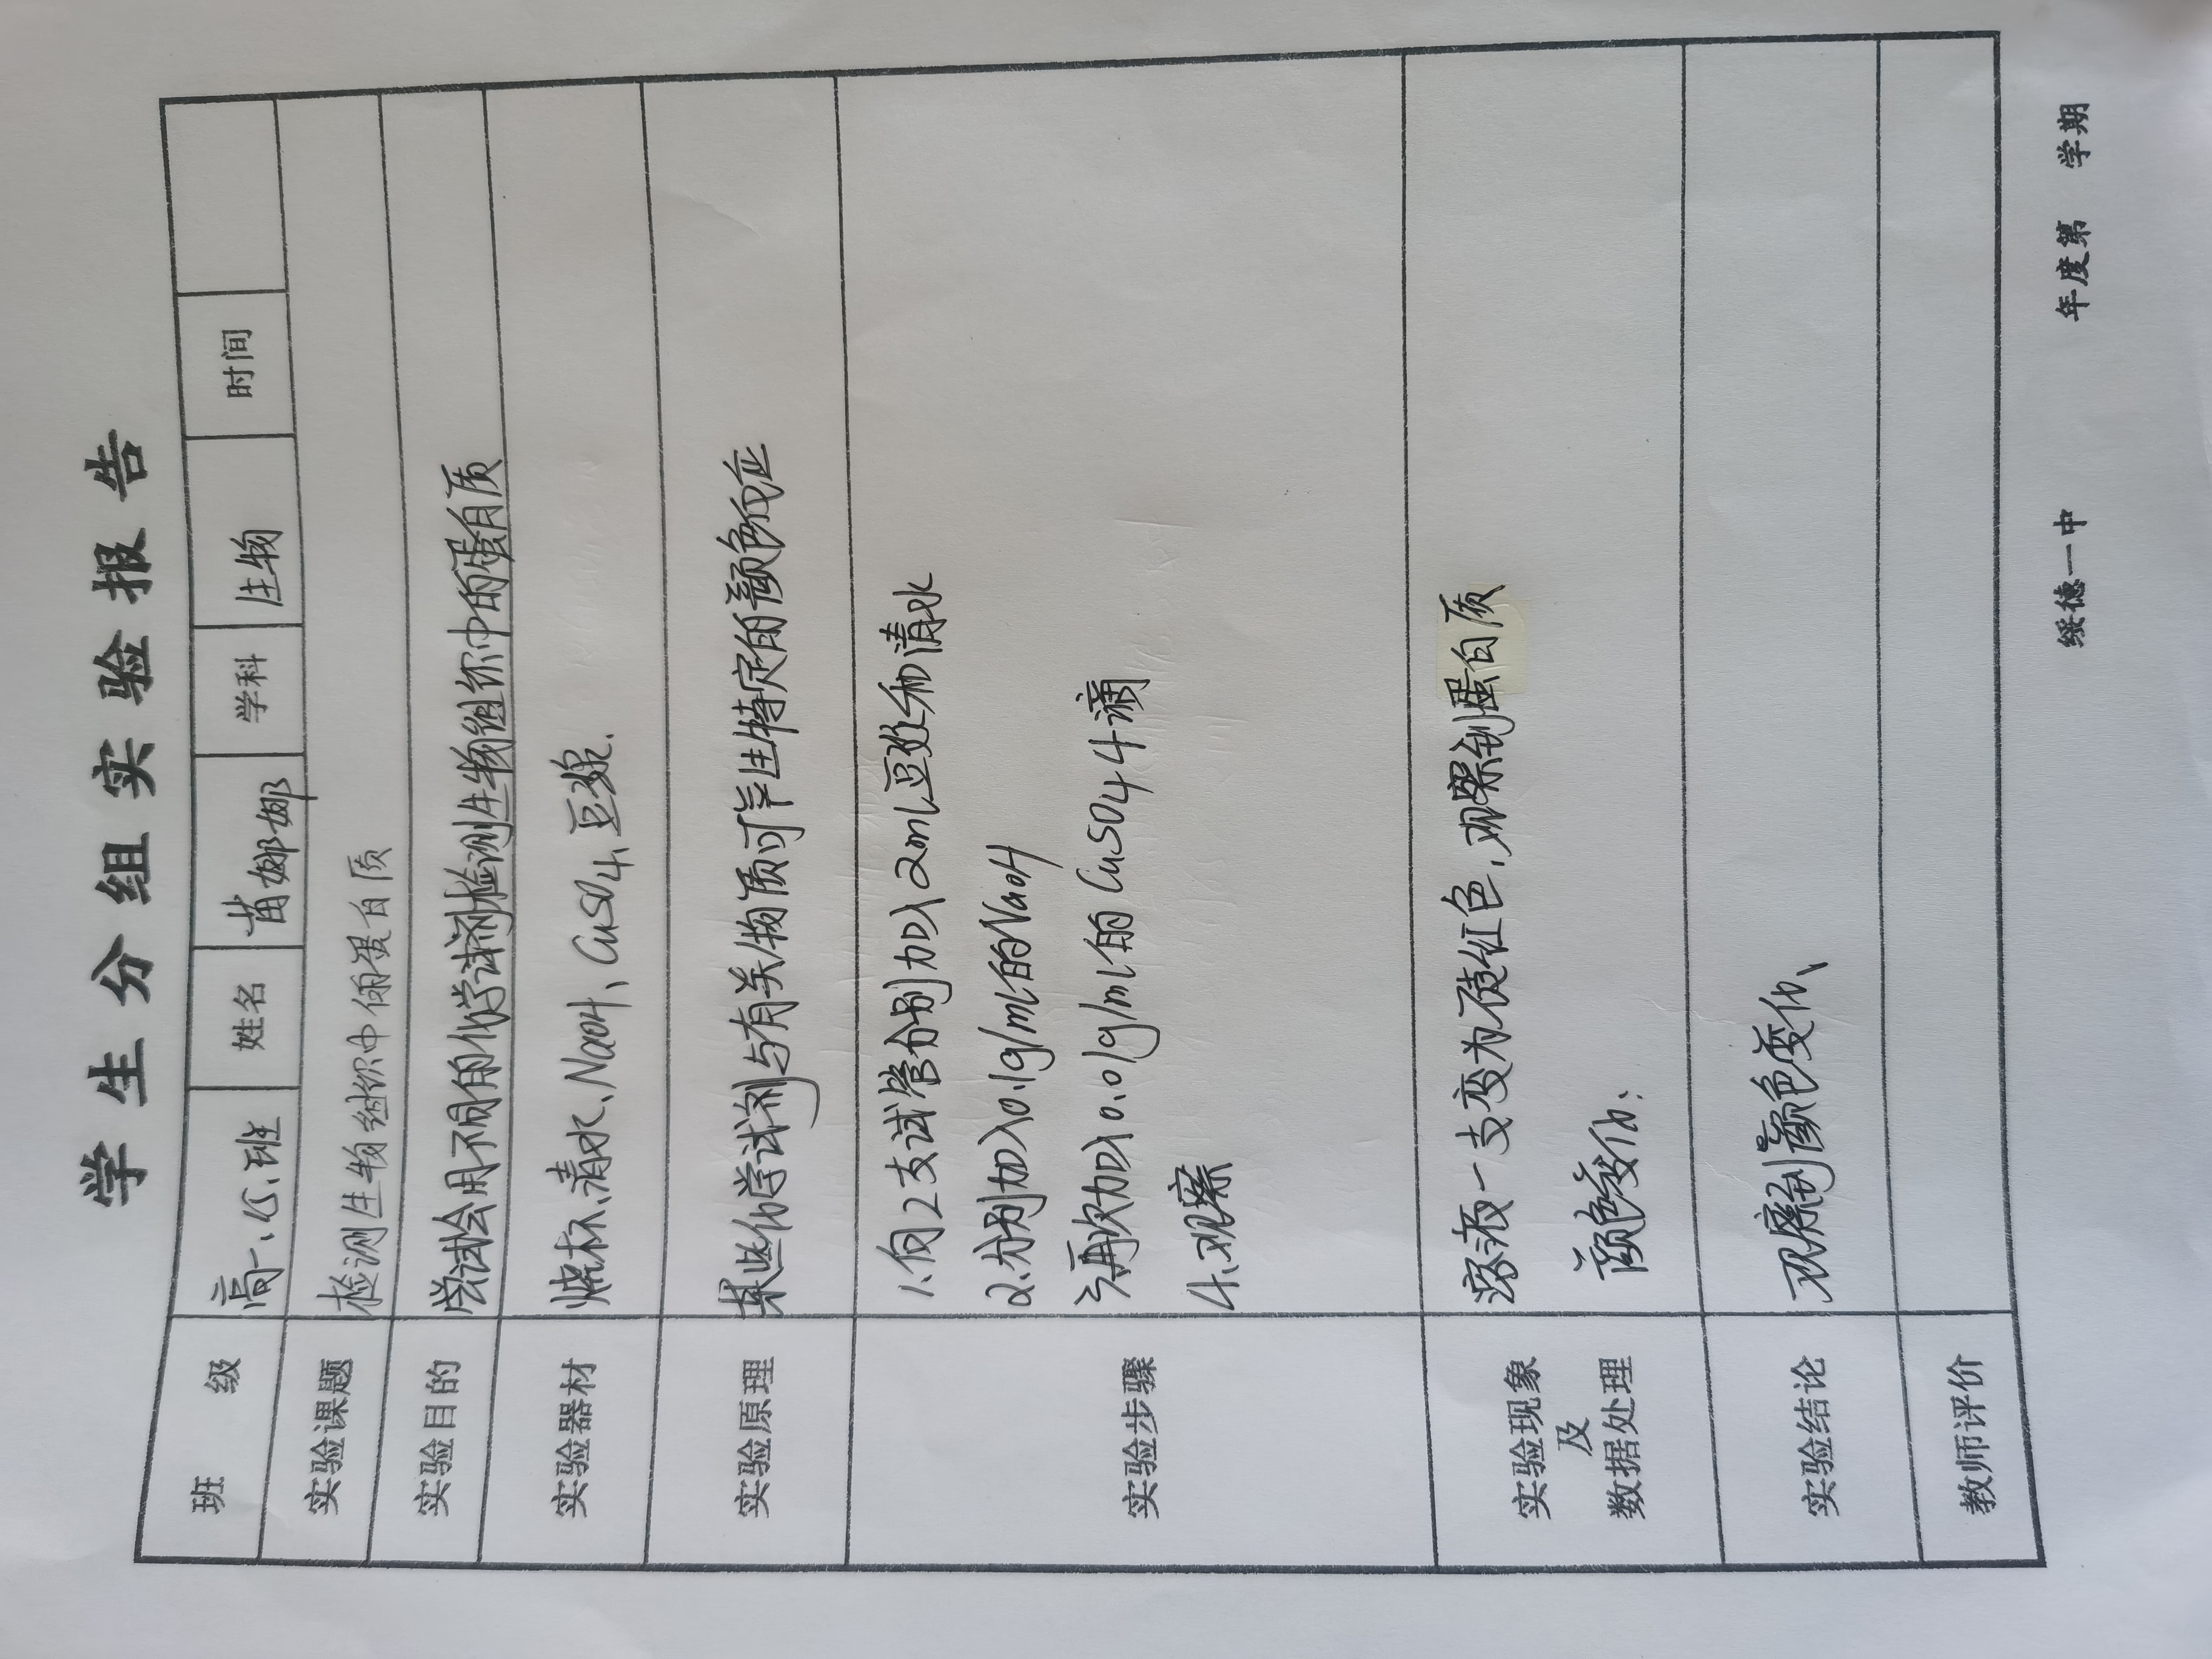 学生分组实验报告
班 级 高一、 班 姓名 苗娜娜 学科 生物 时间
实验课题 检测生物组织中 蛋白质
实验目的 尝试会用不同的化学试剂检测生物组织中的蛋白质
实验器材 烧杯、清水、NaOH、CuSO4、豆浆.
实验原理 某些化学试剂与有关物质可产生特定的颜色反应
实验步骤
1.向2支试管分别加入2mL豆浆和清水
2.分别加入0.1g/mL的NaOH
3再次加入0.01g/mL的CuSO4 4滴
4.观察
实验现象
及
数据处理
溶液一支变为 红色,观察到蛋白质
颜色变化;
实验结论 观察到颜色变化、
教师评价
绥德一中 年度第 学期